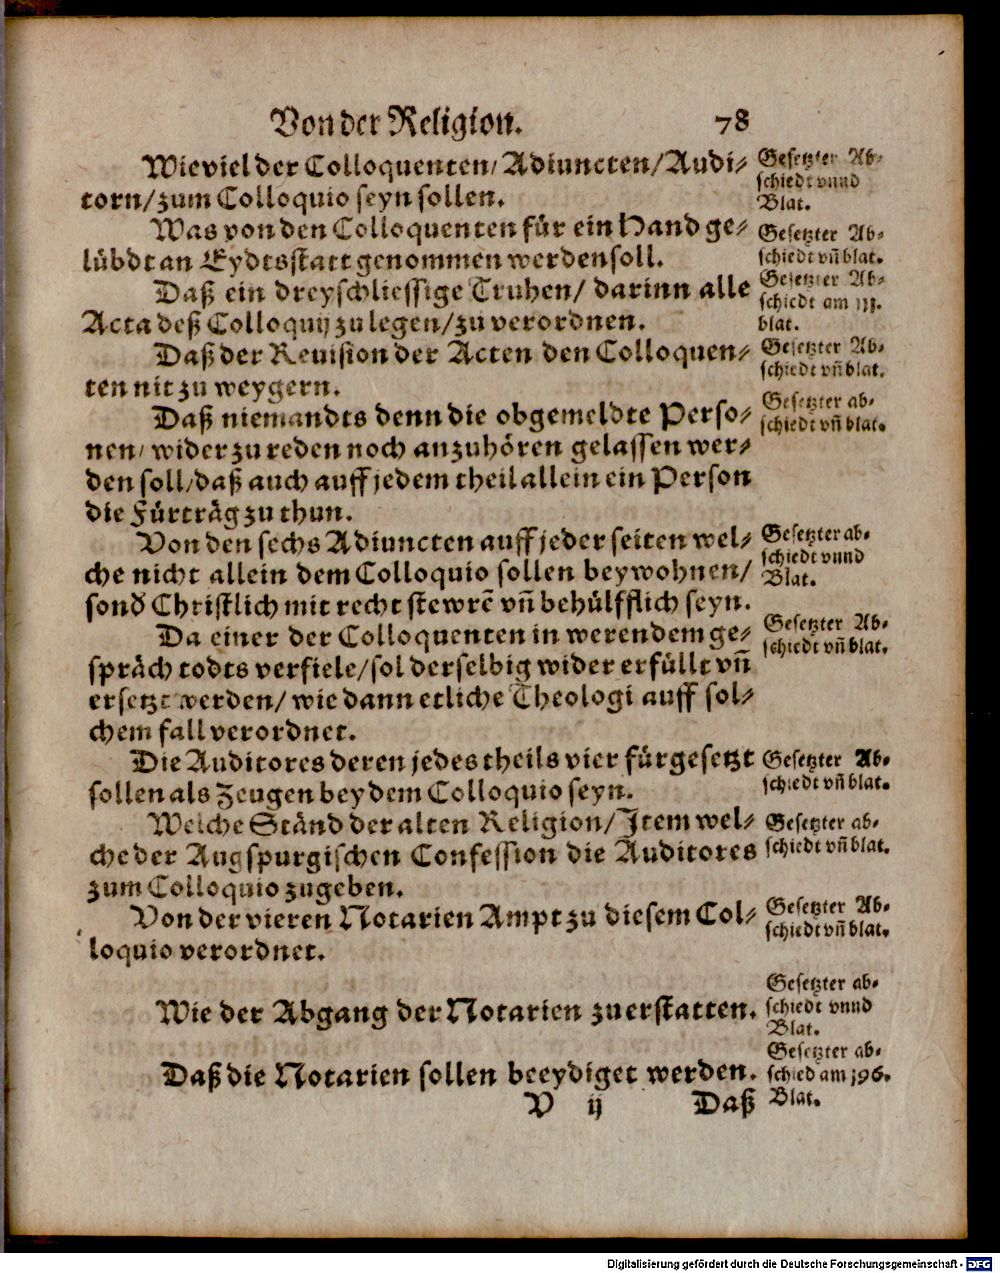 Von der Religion. 78
Wieviel der Colloquenten/ Adiuncten/ Audi⸗
torn/ zum Colloquio seyn sollen.
Gesetzter Ab⸗
schiedt vnnd
Blat.
Was von den Colloquenten für ein Hand ge⸗
lübdt an Eydtsstatt genommen werden soll.
Gesetzter Ab⸗
schiedt vñ blat.
Daß ein dreyschliessige Truhen/ darinn alle
Acta deß Colloquij zu legen/ zu verordnen.
Gesetzter Ab⸗
schiedt am
blat.
Daß der Reuision der Acten den Colloquen⸗
ten nit zu weygern.
Gesetzter Ab⸗
schiedt vñ blat.
Daß niemandts denn die obgemeldte Perso⸗
nen/ wider zu reden noch anzuhören gelassen wer⸗
den soll/ daß auch auff jedem theil allein ein Person
die Fürträg zu thun.
Gesetzter ab⸗
schiedt vñ blat.
Von den sechs Adiuncten auff jeder seiten wel⸗
che nicht allein dem Colloquio sollen beywohnen/
sond' Christlich mit recht stewrē vñ behülfflich seyn.
Gesetzter ab⸗
schiedt vnnd
Blat.
Da einer der Colloquenten in werendem ge⸗
spräch todts verfiele/ sol derselbig wider erfüllt vñ
ersetzt werden/ wie dann etliche Theologi auff sol⸗
chem fall verordnet.
Gesetzter Ab⸗
schiedt vñ blat.
Die Auditores deren jedes theils vier fürgesetzt
sollen als Zeugen bey dem Colloquio seyn.
Gesetzter Ab⸗
schiedt vñ blat.
Welche Ständ der alten Religion/ Item wel⸗
che der Augspurgischen Confession die Auditores
zum Colloquio zugeben.
Gesetzter ab⸗
schiedt vñ blat.
Von der vieren Notarien Ampt zu diesem Col⸗
loquio verordnet.
Gesetzter Ab⸗
schiedt vñ blat.
Wie der Abgang der Notarien zuerstatten.
Gesetzter ab⸗
schiedt vnnd
Blat.
Daß die Notarien sollen beeydiget werden.
Gesetzter ab⸗
schied am 196.
Blat.
V ij Daß
Digitalisierung gefördert durch die Deutsche Forschungsgemeinschaft - DFG